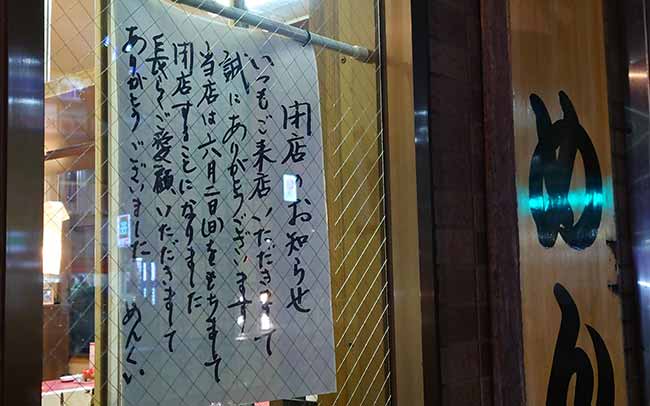 閉店のお知らせ
いつもご来店いただきまして
誠にありがとうございます
当店は六月二日(日)をもちまして
閉店することになりました
長らくご愛顧いただきまして
ありがとうございました めんくい
めん